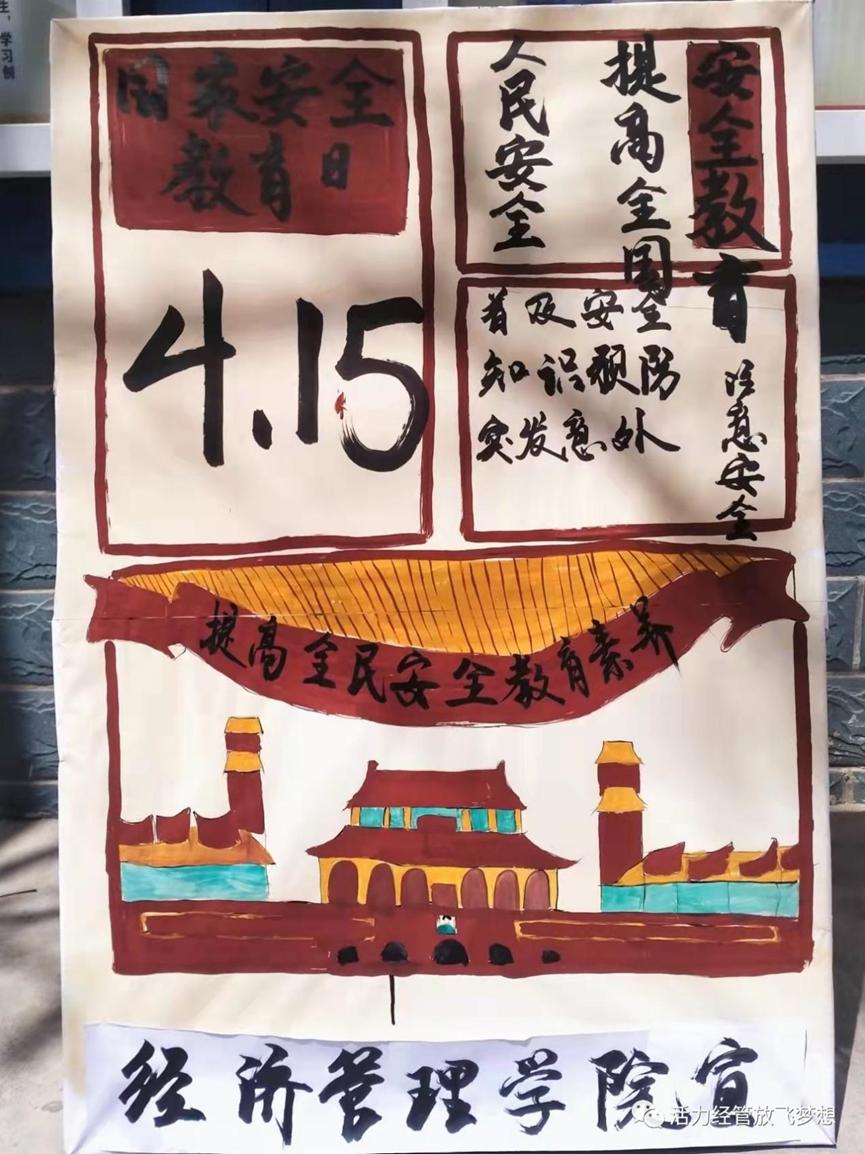 国家安全
教育日
4.15
安全教育
注意安全
提高全国
人民安全
普及安全
知识预防
突发意外
提高全民安全教育素养
经济管理学院宣
活力经管放飞梦想
学习创